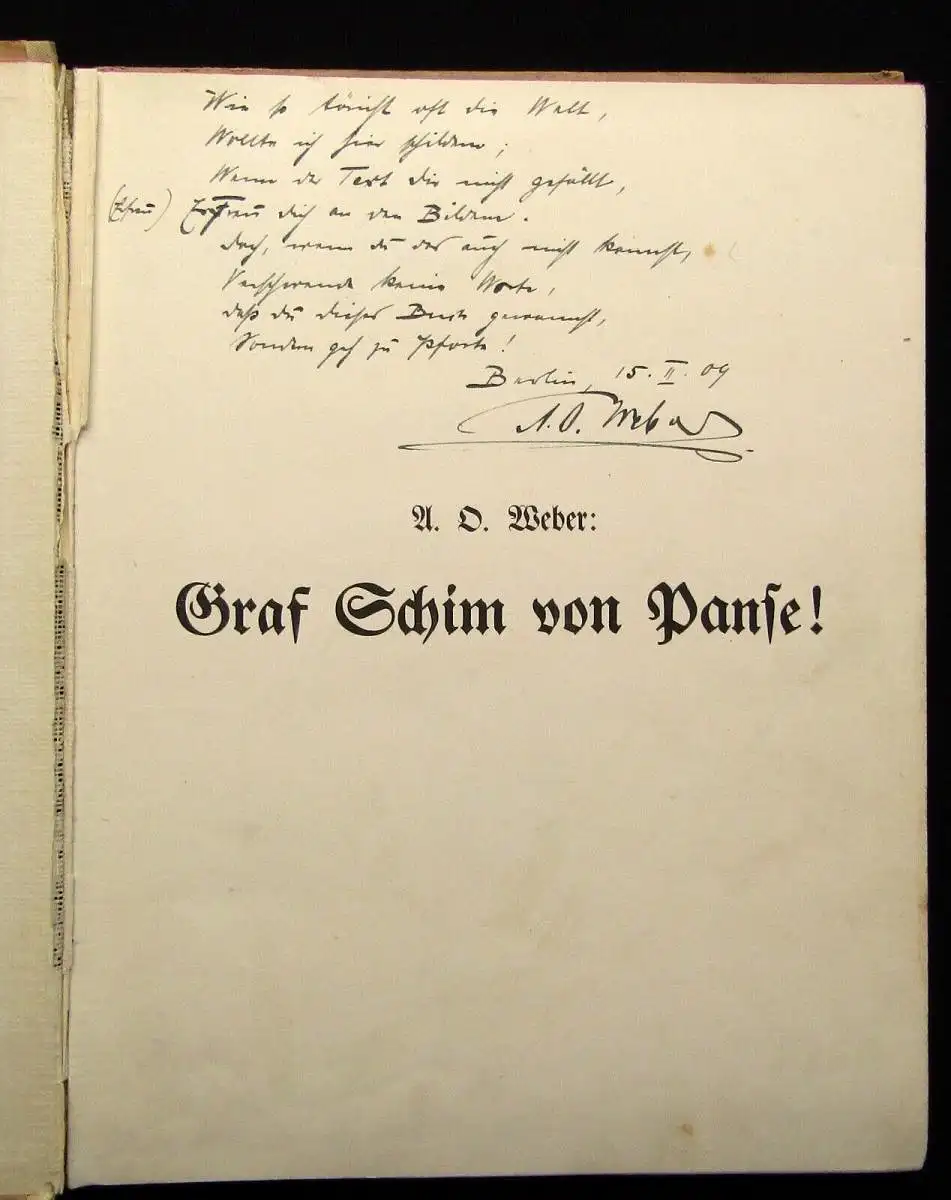 Wie so töricht oft die Welt,
Wollte ich hier schildern;
Wenn der Text dir nicht gefällt,
(Erfreu) Erfreu dich an den Bildern.
Doch, wenn du das auch nicht kannst,
Verschwende keine Worte,
daß du dieses Buch gewannst,
Sondern geh zu Pforte!
Berlin, 15. II. 09
A. O. Weber
A. O. Weber:
Graf Schim von Panse!